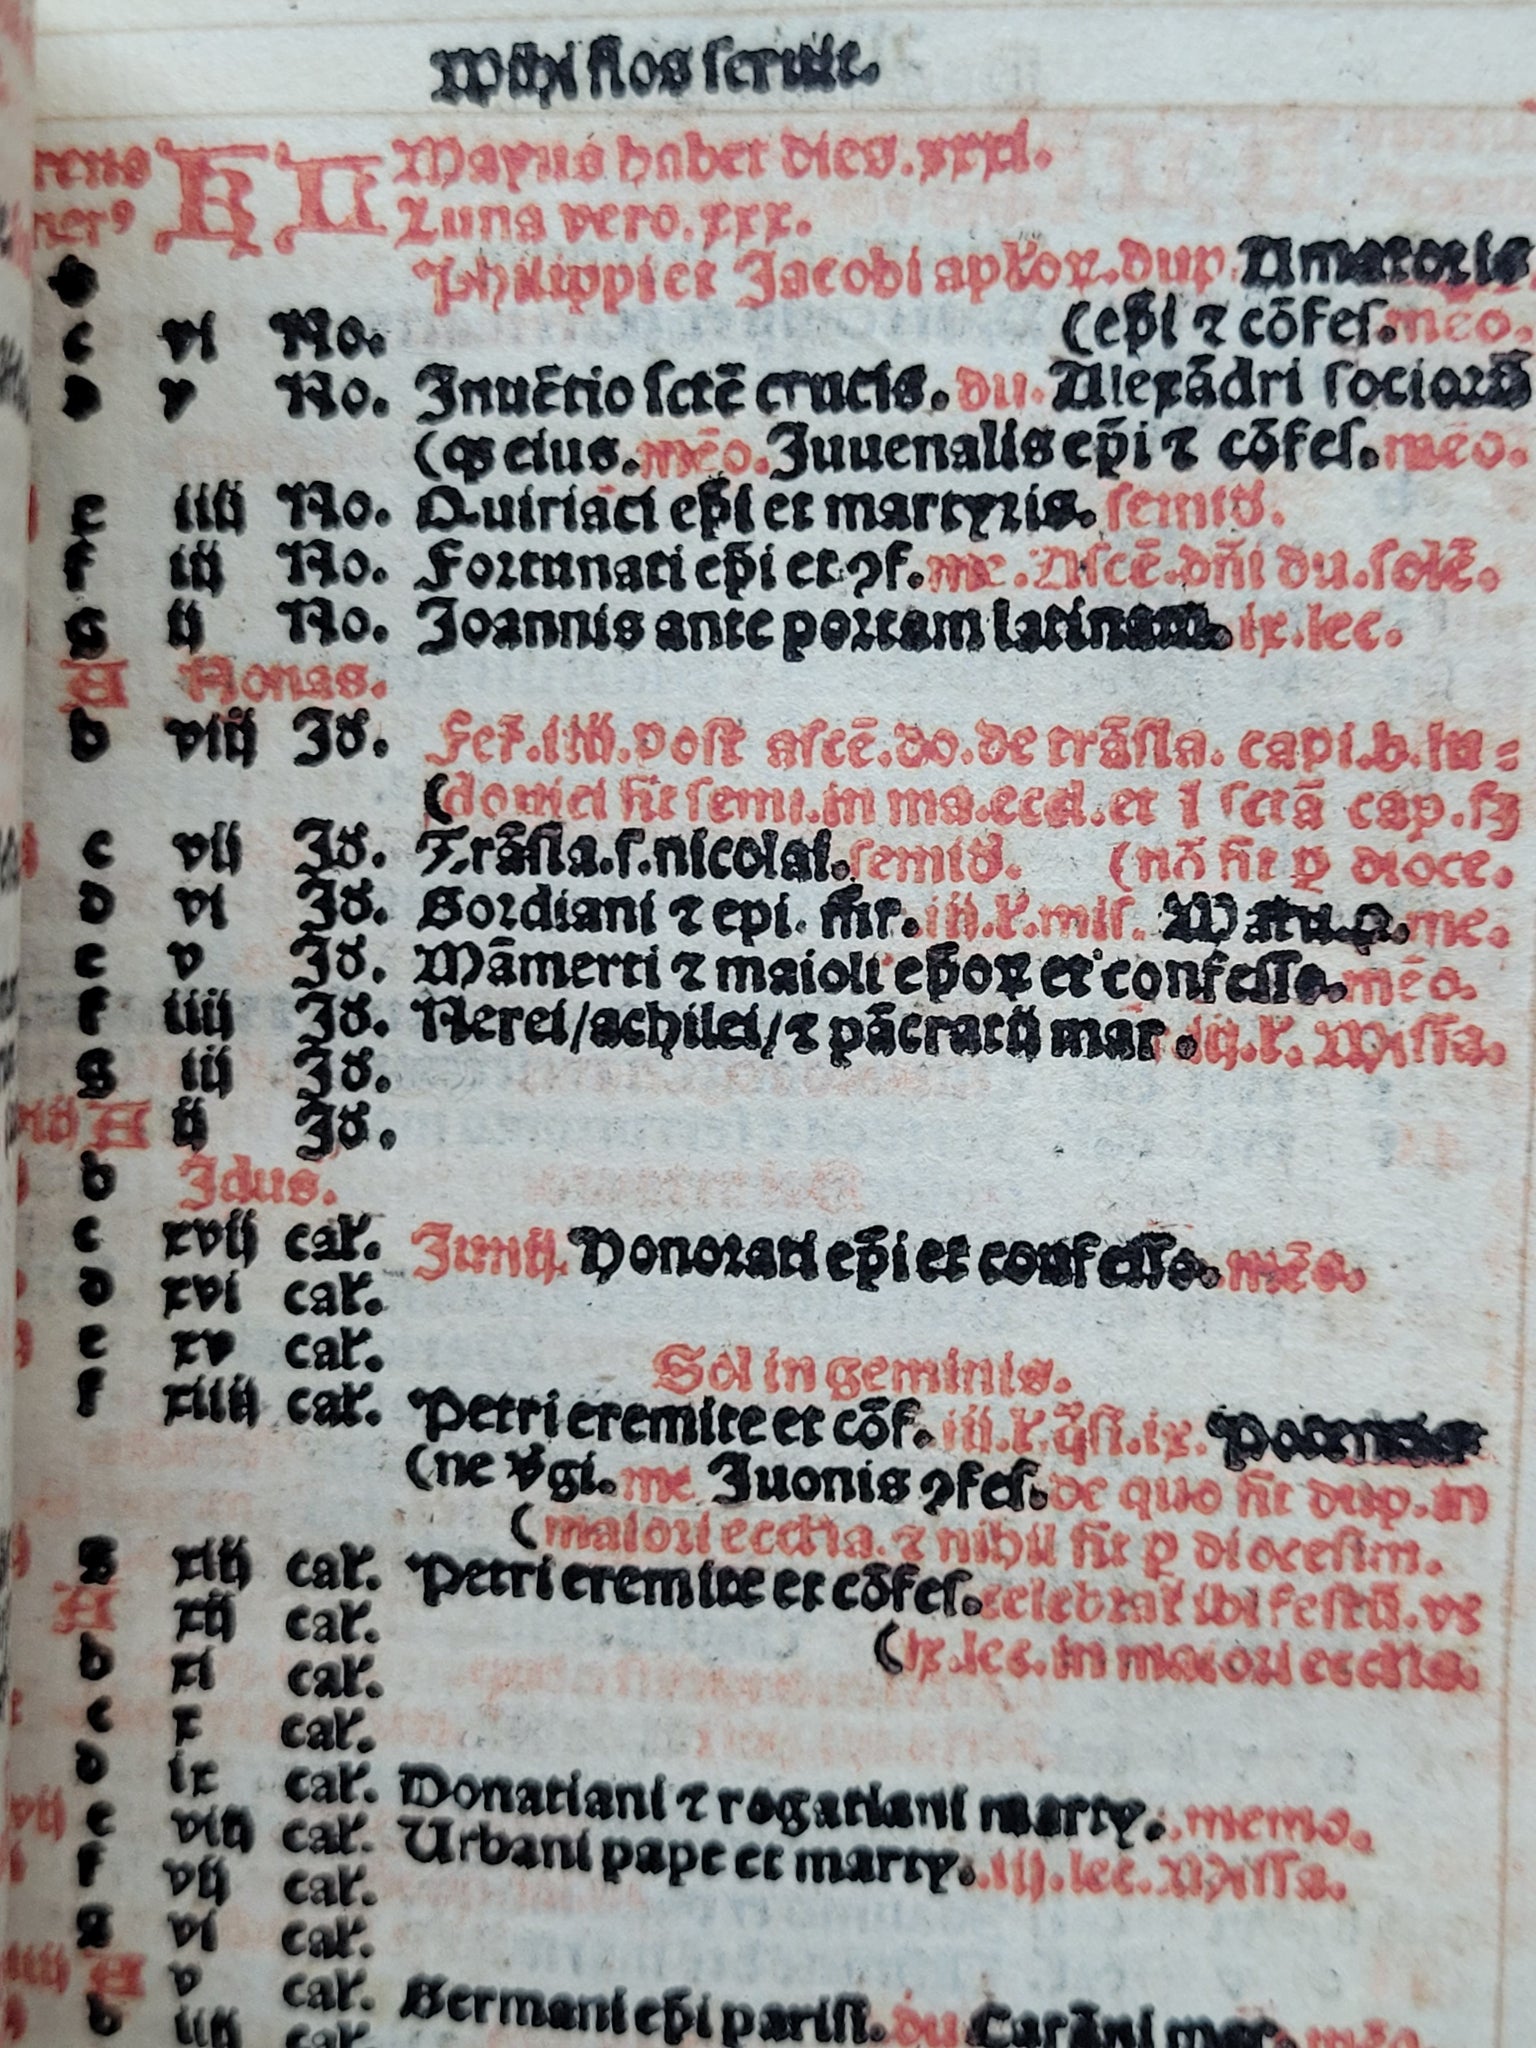 Mihi flos seruit.
KL Mayus habet dies.xxxi.
Luna vero.xxx.
b Philippi et Jacobi apľoꝝ.dup Amatoris
c vi No. (ep̄i ⁊ cōfeſ.meo.
d v No. Inuētio ſctē crucis.du.Alexādri ſocioꝝū
(qꝫ eius.mēo.Juuenalis ep̄i ⁊ cōfeſ.mēo.
e iiij No. Quiriaci ep̄i et martyris.ſemid.
f iij No. Fortunati ep̄i et ꝯf.me.Aſcē.dn̄i du.ſolē.
g ij No. Joannis ante portam latinam.ix.lec.
A Nonas.
b viij Id. Fer̄.iiij.poſt aſcē.do.de trāſla.capi.b.lu=
(douici fit ſemi.in ma.eccl.et i ſctā cap.ſꝫ
c vij Id. Trāſla.ſ.nicolai.ſemid. (nō fit p dioce.
d vi Id. Gordiani ⁊ epi.mr̄.iij.ľ.miſ. Matu.p.me.
e v Id. Māmerti ⁊ maioli ep̄oꝝ et confeſſo.mēo.
f iiij Id. Nerei/achilei/⁊ pācratij mar.iij.ľ.Miſſa.
g iij Id.
A ij Id.
b Idus.
c xvij caľ. Junij.Honorati ep̄i et confeſſo.mēo.
d xvi caľ.
e xv caľ. Sol in geminis.
f xiiij caľ. Petri eremite et cōf.iij.ľ.q̄ſi.ix.
(ne v̄gi.me Juonis ꝯfeſ.de quo fit dup.in
(maiori eccľia.⁊ nihil fit p dioceſim.
g xiij caľ. Petri eremite et cōfeſ.celebrat̄ ibi feſtū.vs
A xij caľ. (ix.lec.in maiori eccľia.
b xi caľ.
c x caľ.
d ix caľ. Donatiani ⁊ rogatiani marty.memo.
e viij caľ. Urbani pape et marty.iij.lec.Miſſa.
f vij caľ.
g vi caľ.
A v caľ. Germani ep̄i pariſi.du
b iiij caľ.